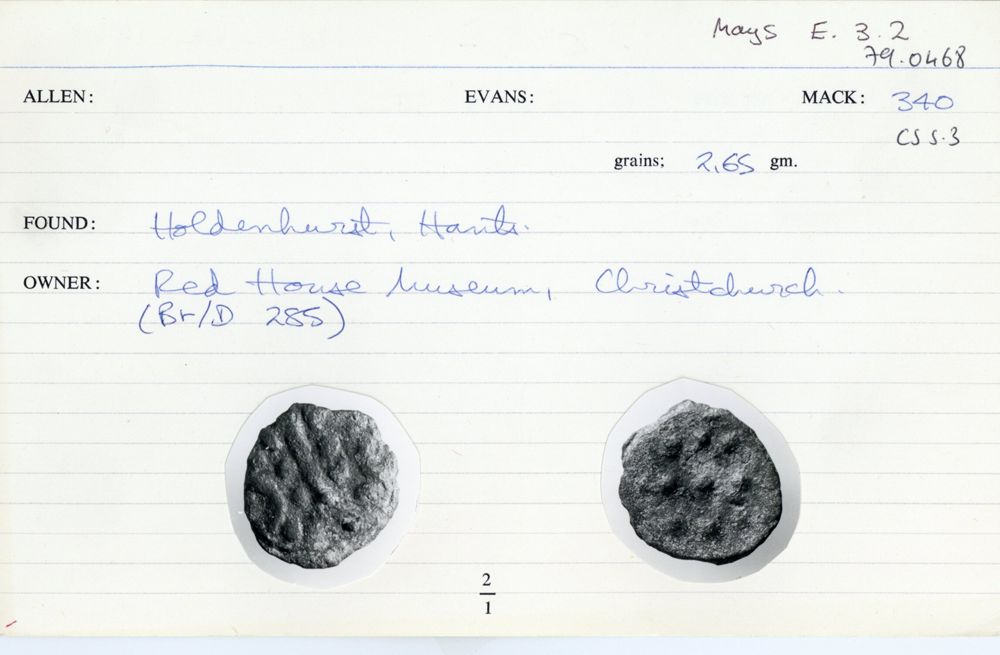 Mays E. 3. 2
79.0468
ALLEN: EVANS: MACK: 340
CSS.3
grains; 2.65 gm.
FOUND: Holdenhurst, Hants.
OWNER: Red House Museum, Christchurch.
(Br/D 285)
2
1